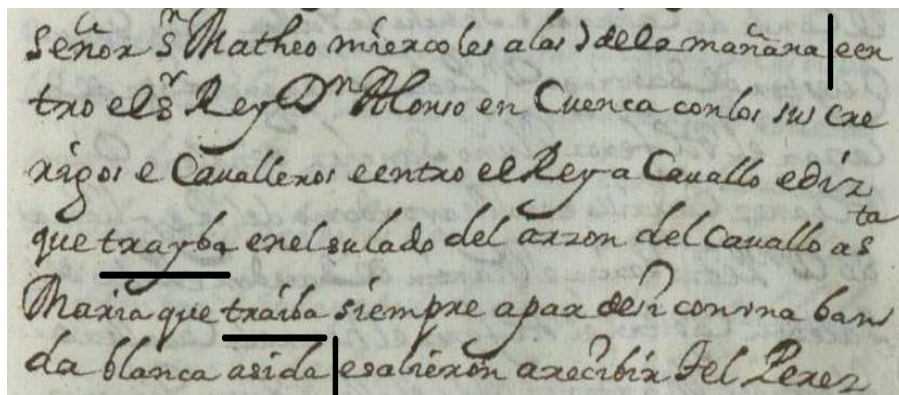 Señor Sn Matheo miercoles a las 7 de la mañana e en
tro el Sr Rey Dn Alonso en Cuenca con los sus cre
rigos e Cavalleros e entro el Rey a Cavallo e diz
que trayba en el su lado del arzon del Cavallo a Sta
Maria que traiba siempre a par de si con una ban
da blanca asida e salieron a recibir Fel Perez